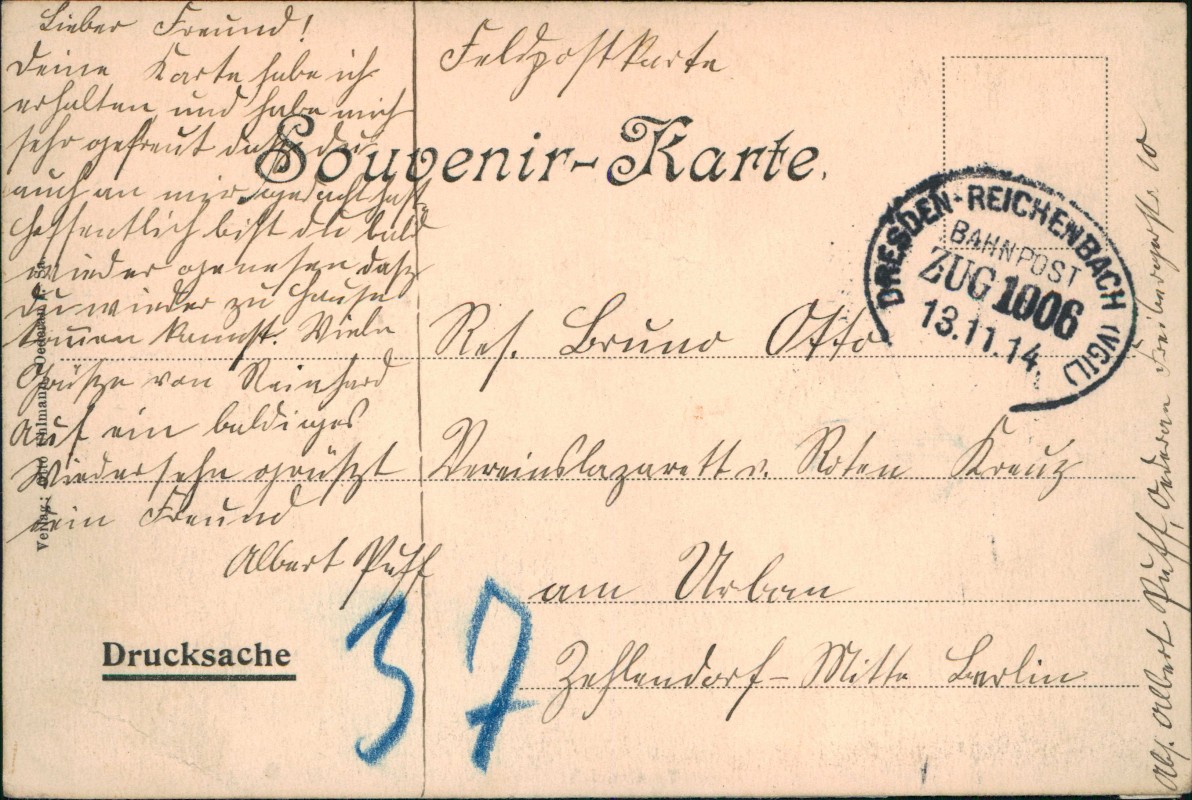 Lieber Freund!
Deine Karte habe ich
erhalten und habe mich
sehr gefreut daß du
auch an mir gedacht hast
Hoffentlich bist du bald
wieder genesen daß
du wieder zu Hause
kom̅en kannst. Viele
Grüße von Reinhard
Auf ein baldiges
Wiedersehn grüßt
dein Freund
Albert Puff
Feldpostkarte
Souvenir-Karte.
DRESDEN-REICHENBACH (VGTL)
BAHNPOST
ZUG 1006
13.11.14.
Res. Bruno Otto
Vereinslazarett v. Roten Kreuz
am Urban
Zehlendorf-Mitte Berlin
Drucksache
37
Verlag: Otto Oederan i. Sa.
Abs. Albert Puff, Oederan Freibergerstr. 10